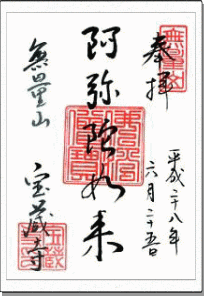 奉拝
平成二十八年
六月二十五日
阿弥陀如来
無量山
宝蔵寺